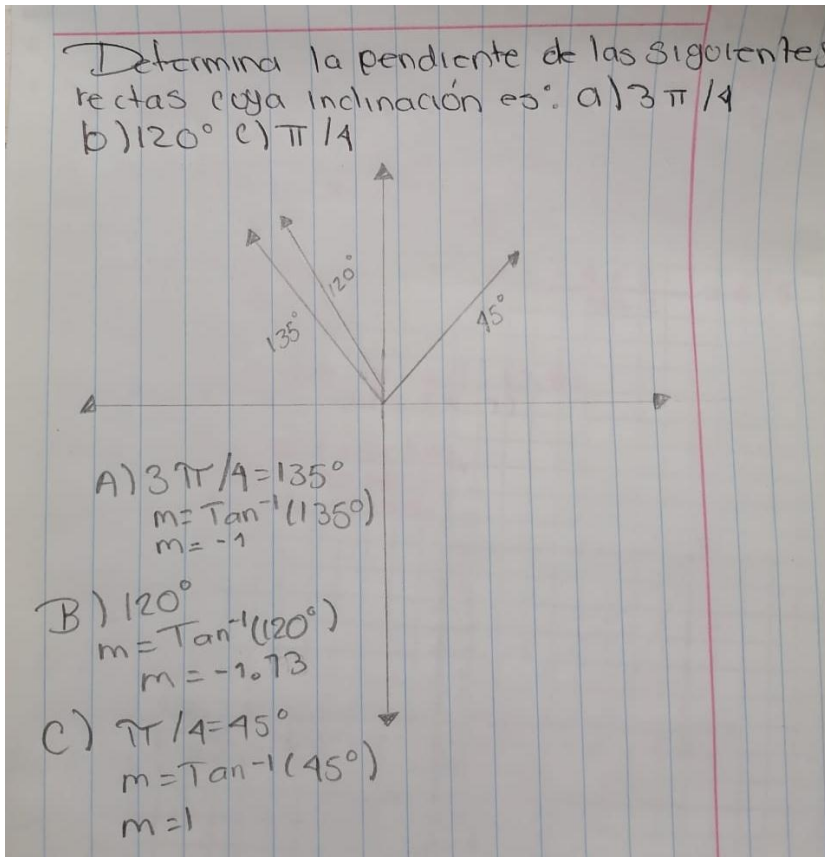 Determina la pendiente de las sigoientes
rectas coya inclinación es: a) 3π/4
b) 120° c) π/4
120°
135°
45°
A) 3π/4=135°
m=Tan⁻¹(135°)
m=-1
B) 120°
m=Tan⁻¹(120°)
m=-1.73
C) π/4=45°
m=Tan⁻¹(45°)
m=1